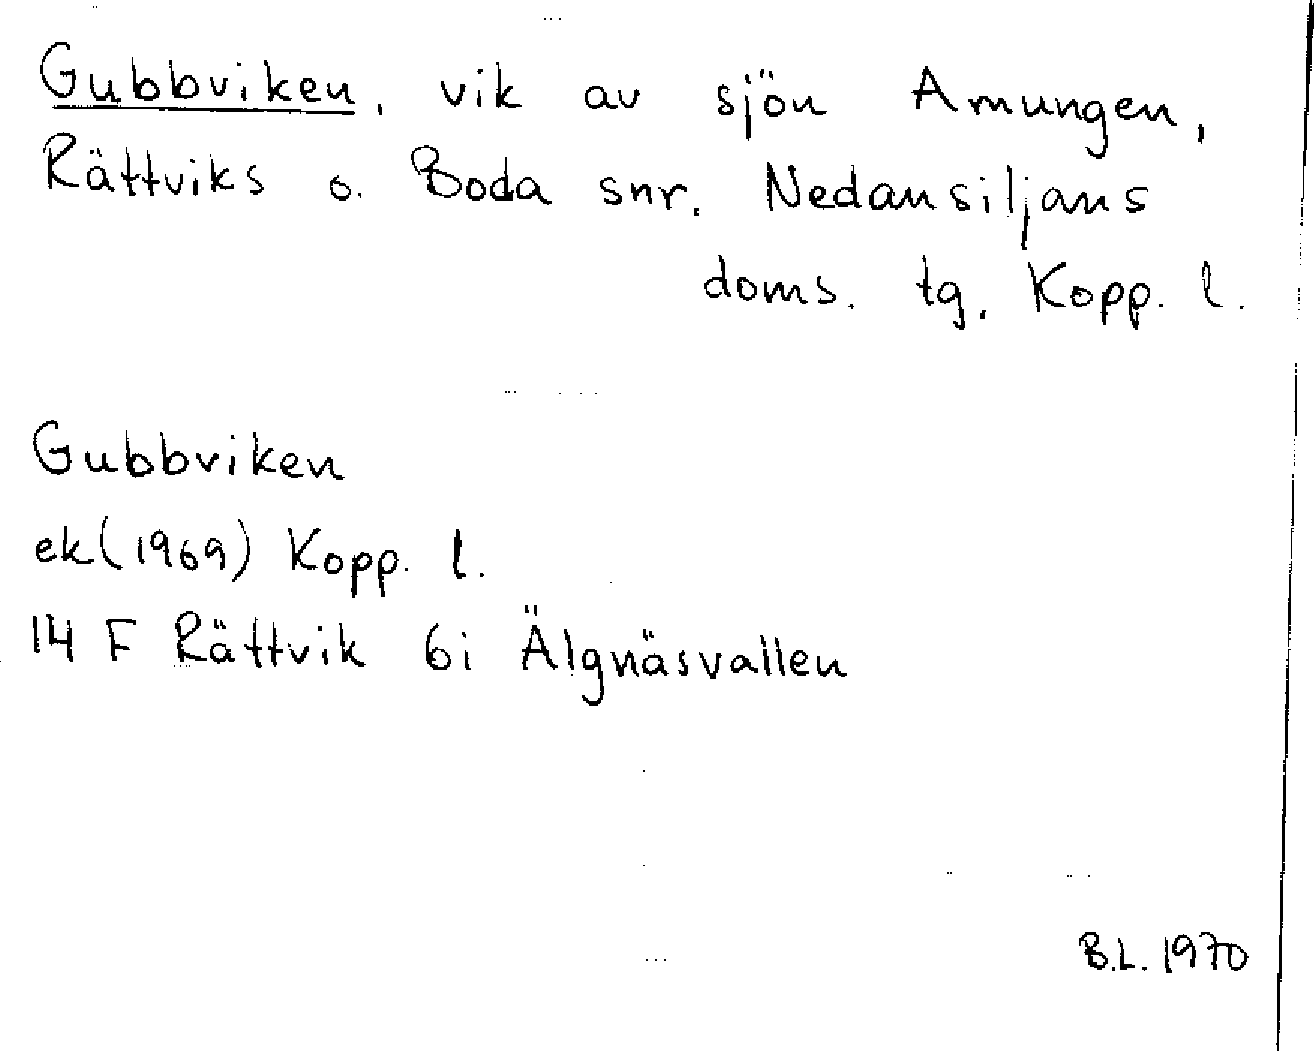 Gubbviken, vik av sjön Amungen,
Rättviks o. Boda snr. Nedansiljans
doms. tg. Kopp. l.
Gubbviken
ek (1969) Kopp. l.
14 F Rättvik 6i Älgnäsvallen
B.L. 1970